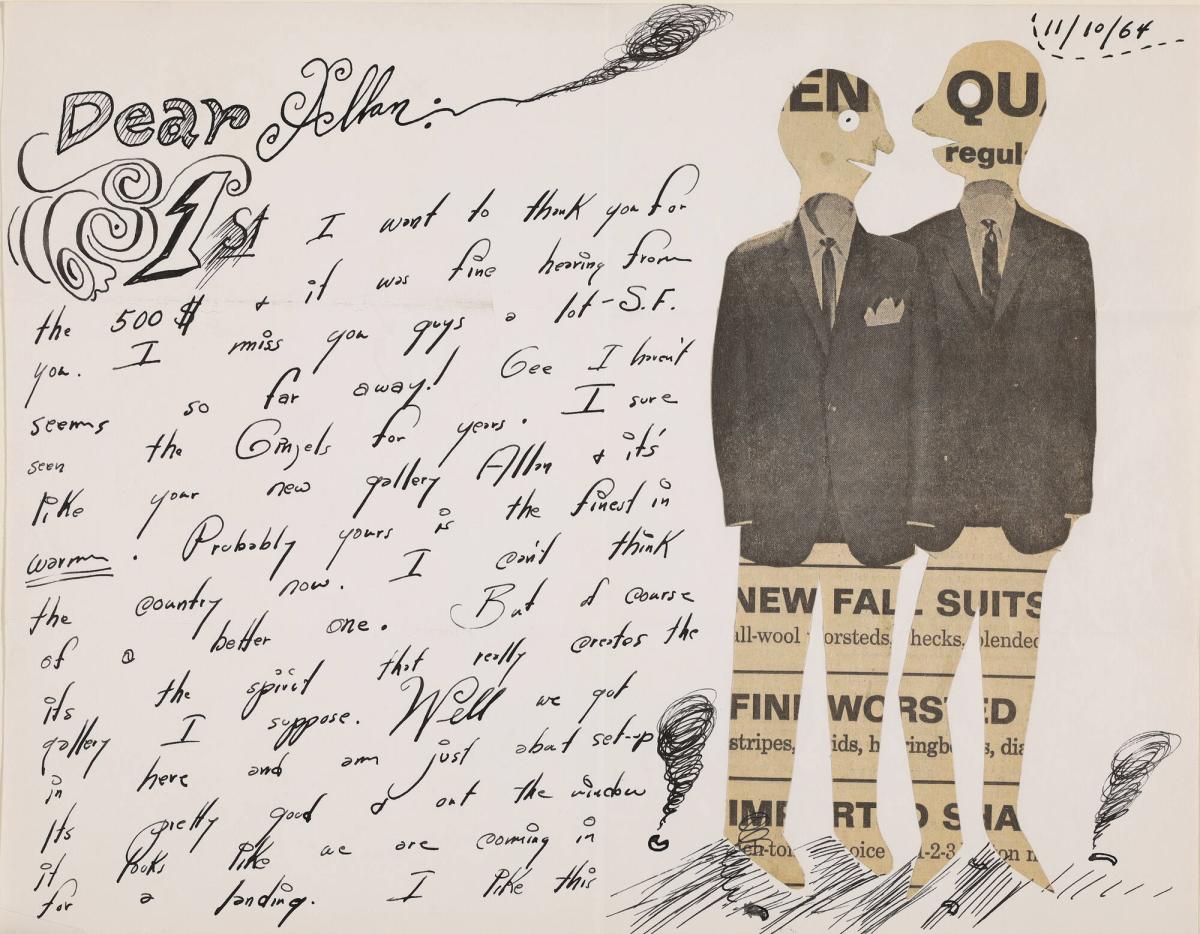 11/10/64
Dear Allan:
1st I want to thank you for
the 500 $ & it was fine hearing from
you. I miss you guys a lot - S.F.
seems so far away! Gee I haven't
seen the Ginzels for years. I sure
like your new gallery Allan & it's
warm. Probably yours is the finest in
the country now. I can't think
of a better one. But of course
its the spirit that really creates the
gallery I suppose. Well we got
in here and am just about set-up
Its pretty good & out the window
it looks like we are coming in
for a landing. I like this
EN QU
regul
NEW FALL SUITS
all-wool orsteds, hecks, blended
FIN WORSTED
stripes, ids, h ringb s, dia
IMP RT D SHA
oice 1-2-3 on m